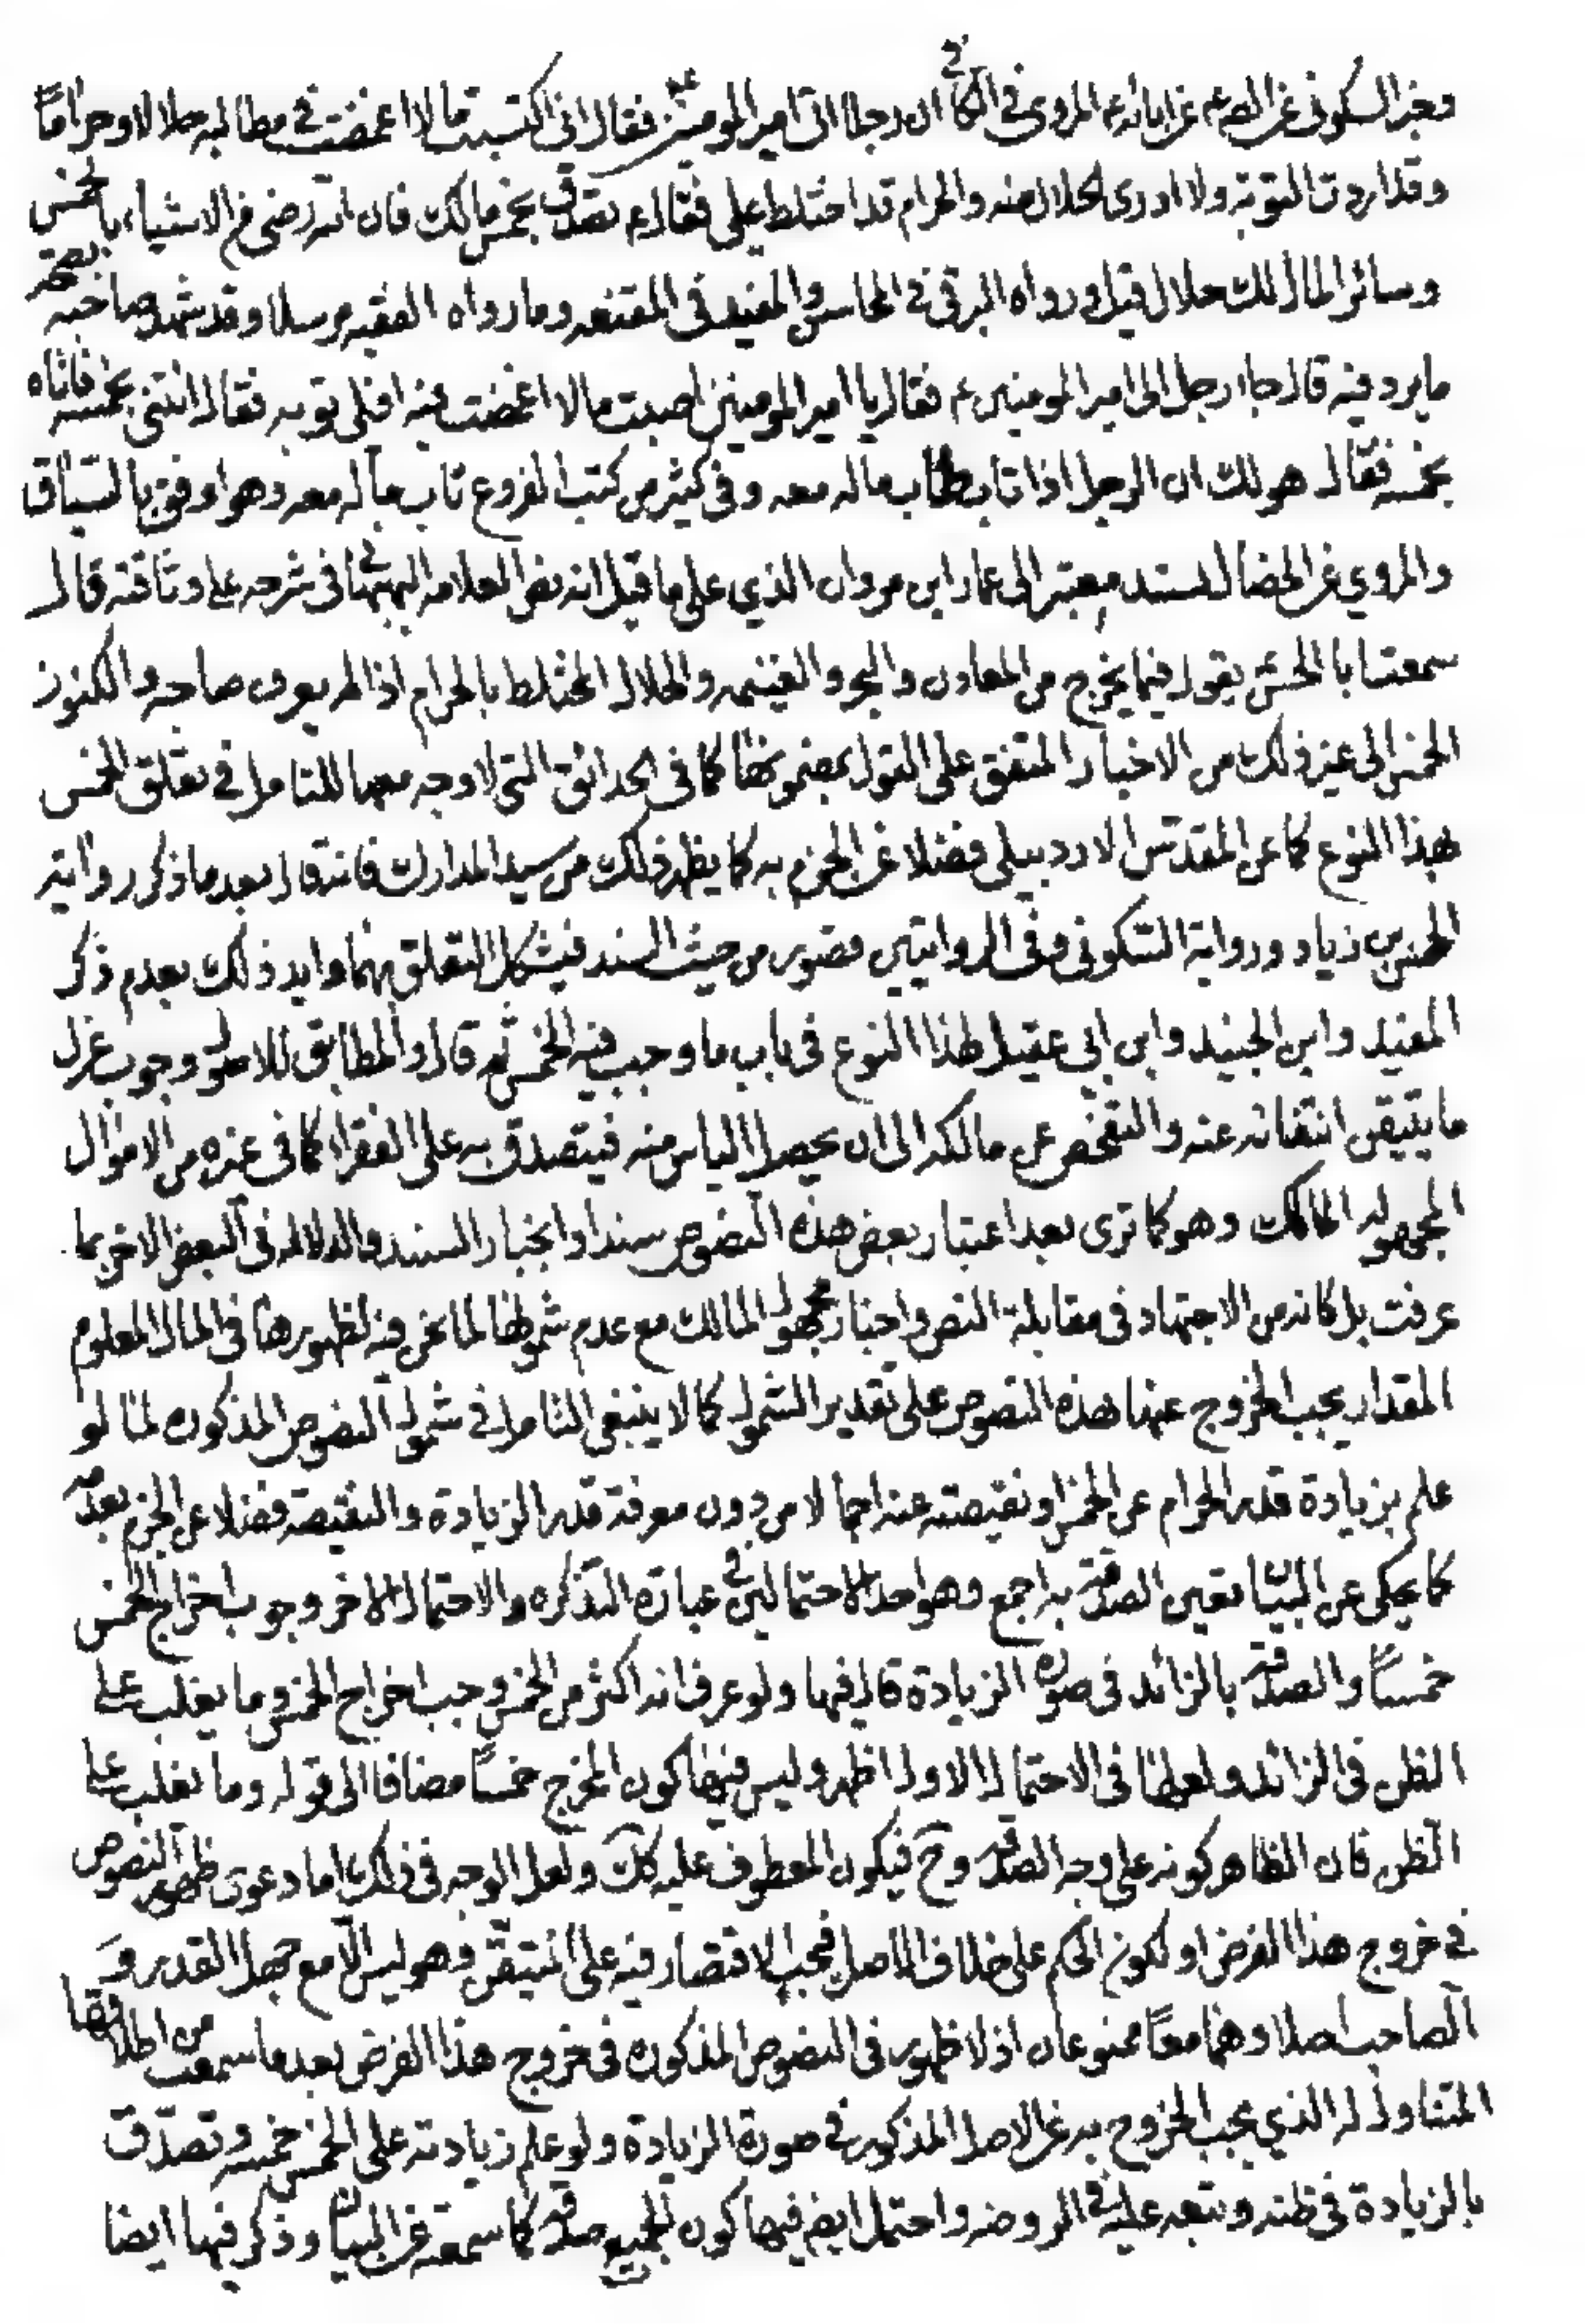 وخبر السكوني عن الص ع عن ابائه ع المروي في الكافي ان رجلا اتى امير المومنين ع فقال اني اكتسبت مالا اغمضت في مطالبه حلالا وحراما
وقد اردت التوبة ولا ادري الحلال منه والحرام قد اختلط علي فقال ع تصدق بخمس مالك فان الله رضي من الاشياء بالخمس
وسائر المال لك حلال قيل ورواه البرقي في المحاسن والمفيد في المقنعه وما رواه الفقيه مرسلا وقد شهد صاحبه بصحة
ما يرد فيه قال جاء رجل الى امير المومنين ع فقال يا امير المومنين اصبت مالا اغمضت فيه افلي توبه فقال ائتني بخمسه فاتاه
بخمسه فقال هو لك ان الرجل اذا تاب تاب ماله معه وفي كثير من كتب الفروع تاب ماله معه وهو اوفق بالسياق
والمروي عن الخصال لسند معتبر الى عمار ابن مروان الذي على ما قيل انه نص العلامه البهبهاني في شرحه على وثاقته قال
سمعت ابا الحسن يقول فيما يخرج من المعادن والبحر والغنيمه والحلال المختلط بالحرام اذا لم يعرف صاحبه والكنوز
الخمس الى غير ذلك من الاخبار المتفق على القول بمضمونها كما في الحدائق التي لا وجه معها للتامل في تعلق الخمس
بهذا النوع كما عن المقدس الاردبيلي فضلا عن الجزم به كما يظهر ذلك من سيد المدارك فانه قال بعد ما ذكر رواية
الحسن بن زياد ورواية السكوني وفي الروايتين قصور من حيث السند فيشكل التعلق بهما وايد ذلك بعدم ذكر
المفيد وابن الجنيد وابن ابي عقيل لهذا النوع في باب ما وجب فيه الخمس ثم قال والمطابق للاصول وجوب عزل
ما يتيقن انتفائه عنه والتفحص عن مالكه الى ان يحصل الياس منه فيتصدق به على الفقراء كما في غيره من الاموال
المجهوله المالك وهو كما ترى بعد اعتبار بعض هذه النصوص سندا وانجبار السند والدلاله في البعض الاخر بما
عرفت بل كانه من الاجتهاد في مقابلة النص واخبار مجهول المالك مع عدم شمولها لما نحن فيه لظهورها في المال المعلوم
المقدار يجب الخروج عنها بهذه النصوص على تقدير الشمول كما لا ينبغي التامل في شمول النصوص المذكوره لما لو
علم بزيادة قدر الحرام عن الخمس او نقيصته عنه اجمالا من دون معرفة قدر الزيادة والنقيصة فضلا عن الجزم بعدمه
كما يحكى عن البيان تعين الصدقه به اجمع وهو احد الاحتمالين في عبارة التذكره والاحتمال الاخر وجوب اخراج الخمس
خمساً والصدقة بالزائد في صوره الزيادة قال فيها ولو عرف انه اكثر من الخمس وجب اخراج الخمس وما يغلب على
الظن في الزائد ولعلها في الاحتمال الاول اظهر وليس فيها كون المخرج خمساً مضافا الى قوله وما يغلب على
الظن فان الظاهر كونه على وجه الصدقه وح فيكون المعطوف عليه كك ولعل الوجه في ذلك اما دعوى ظهور النصوص
في خروج هذا الفرض او لكون الحكم على خلاف الاصل فيجب الاقتصار فيه على المتيقن وهو ليس الا مع جهل القدر و
الصاحب اصلا وهما معاً ممنوعان اذ لا ظهور في النصوص المذكوره في خروج هذا الفرض بعد ما سمعت من اطلاقها
المتناول له الذي يجب الخروج به عن الاصل المذكور في صورة الزيادة ولو علم زيادته على الخمس خمسه وتصدق
بالزيادة في ظنه وتبعه عليه في الروضه واحتمل ايضا فيها كون الجميع صدقه كما سمعته عن البيان وذكر فيها ايضا